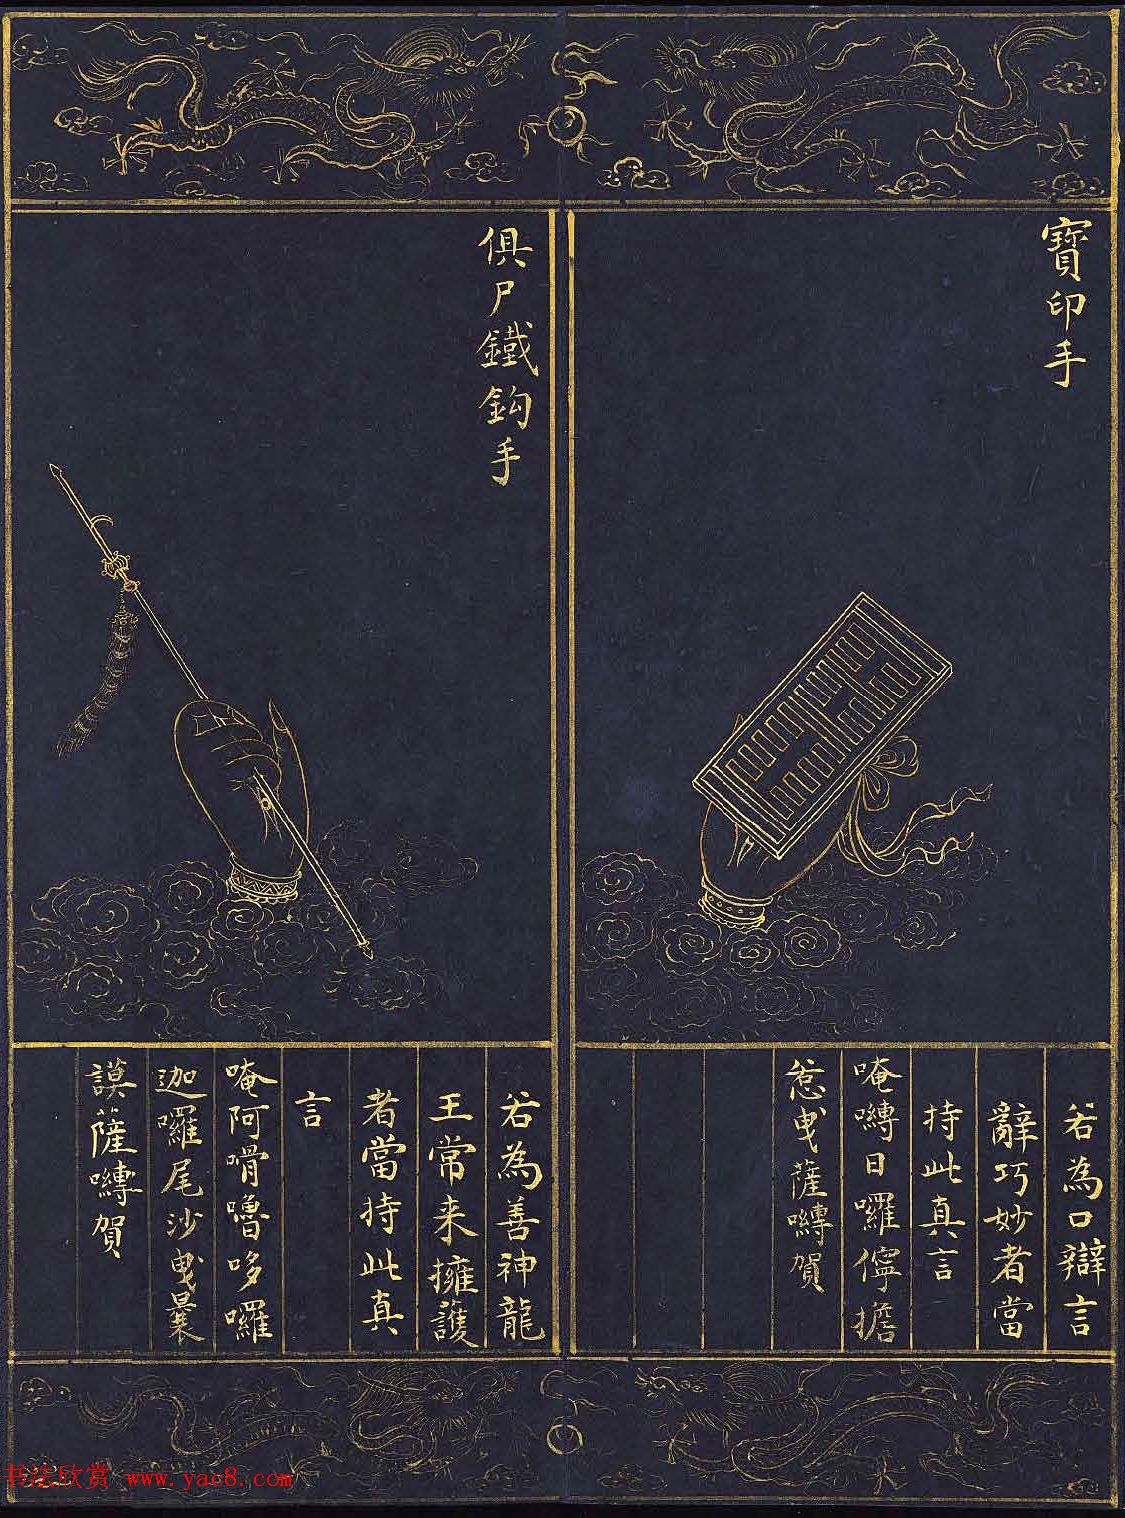 寶印手
若為口辯言
辭巧妙者當
持此真言
唵嚩日囉儜擔
惹曳薩嚩賀
俱尸鐵鈎手
若為善神龍
王常来擁護
者當持此真
言
唵阿嗗嚕哆囉
迦囉尾沙曳曩
謨薩嚩賀
书法欣赏 www.yac8.com